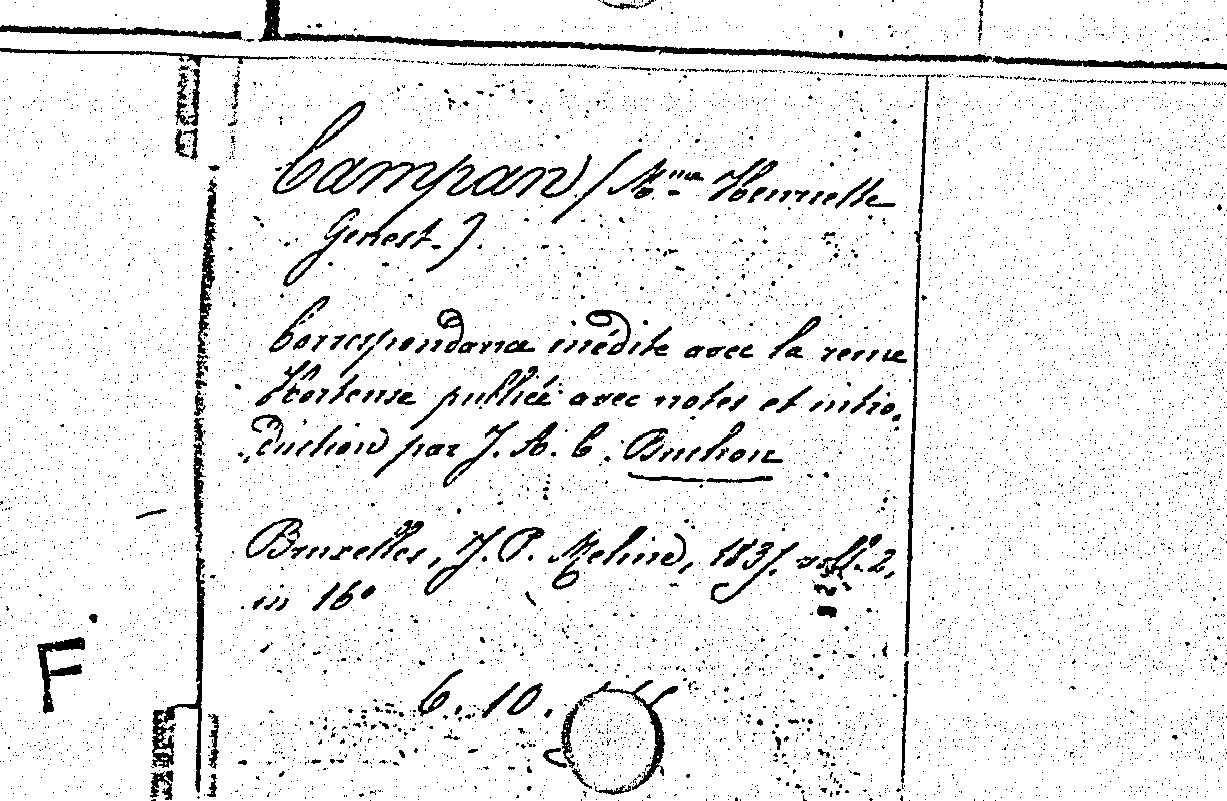 Campan (Mme Henriette
Genest.)
Correspondance inédite avec la reine
Hortense publiée avec notes et intro-
duction par J. A. C. Buchon
Bruxelles, J. P. Meline, 1835. voll. 2,
in 16°
6. 10.
F